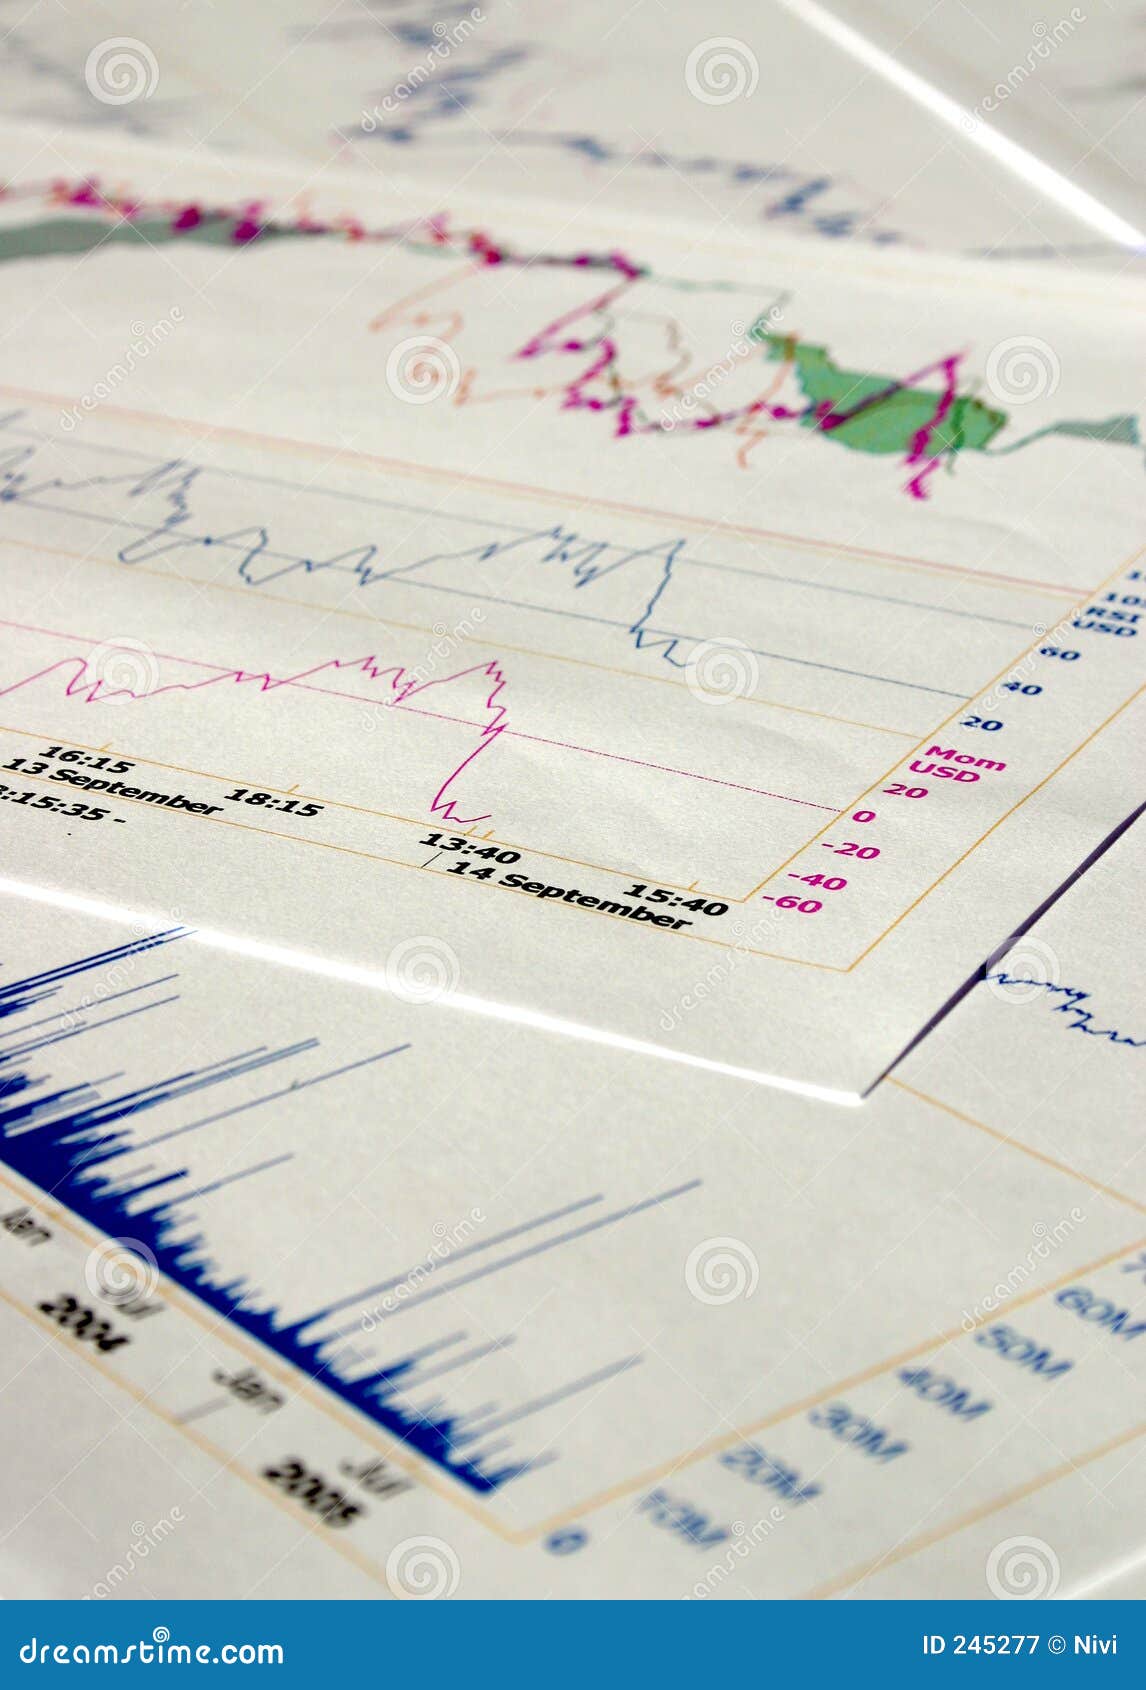 RSI
USD
60
40
20
Mom
USD
20
0
-20
-40
-60
16:15
18:15
13:40
15:40
13 September
14 September
:15:35 -
60M
50M
40M
30M
20M
10M
0
Jan
Jul
Jan
Jul
2004
2005
dreamstime
dreamstime
dreamstime
dreamstime
dreamstime
dreamstime
dreamstime
dreamstime
dreamstime
dreamstime
dreamstime.com
ID 245277 © Nivi